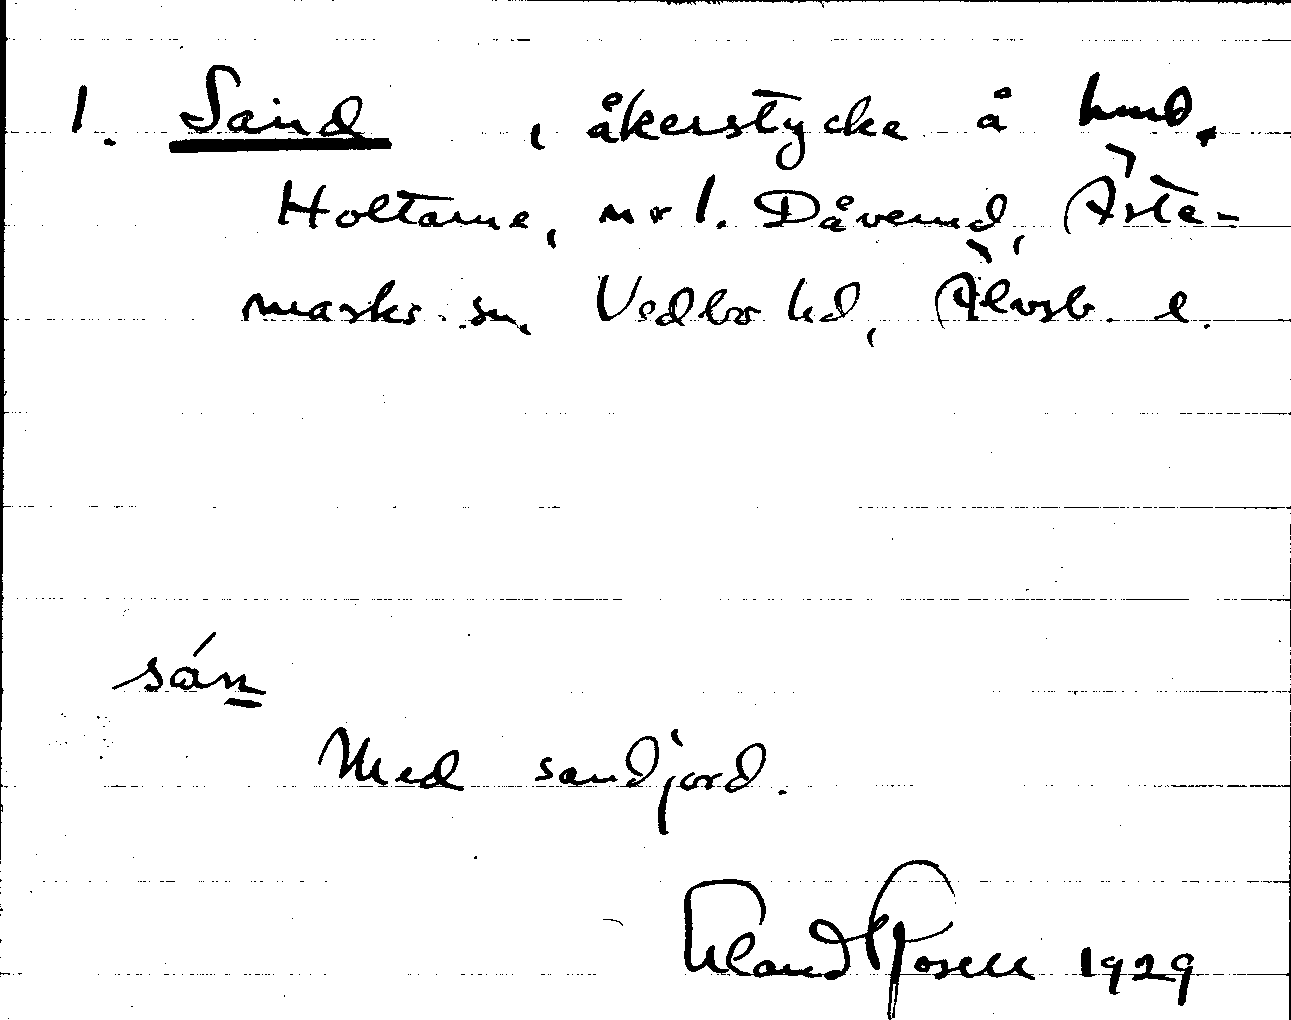 1. Sand, åkerstycke å hmd.
Holtarne, nr 1. Dåverud, Ärte-
marks sn, Vedbo hd, Älvsb. l.
sán
Med sandjord.
Eland Rosell 1929